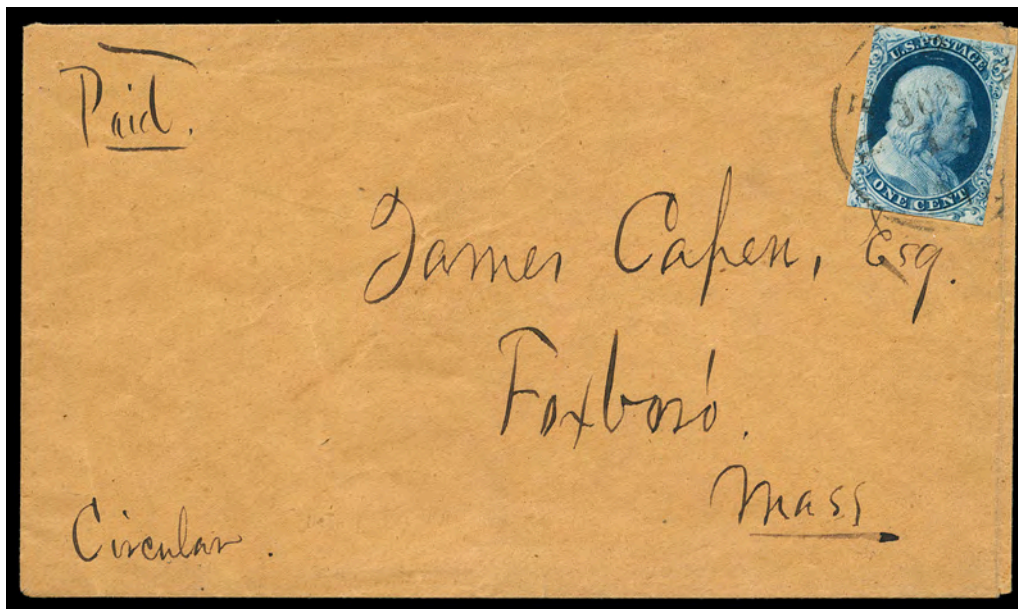 Paid.
U.S. POSTAGE
JUN
ONE CENT
James Capen, Esq.
Foxboro'.
Mass
Circular.